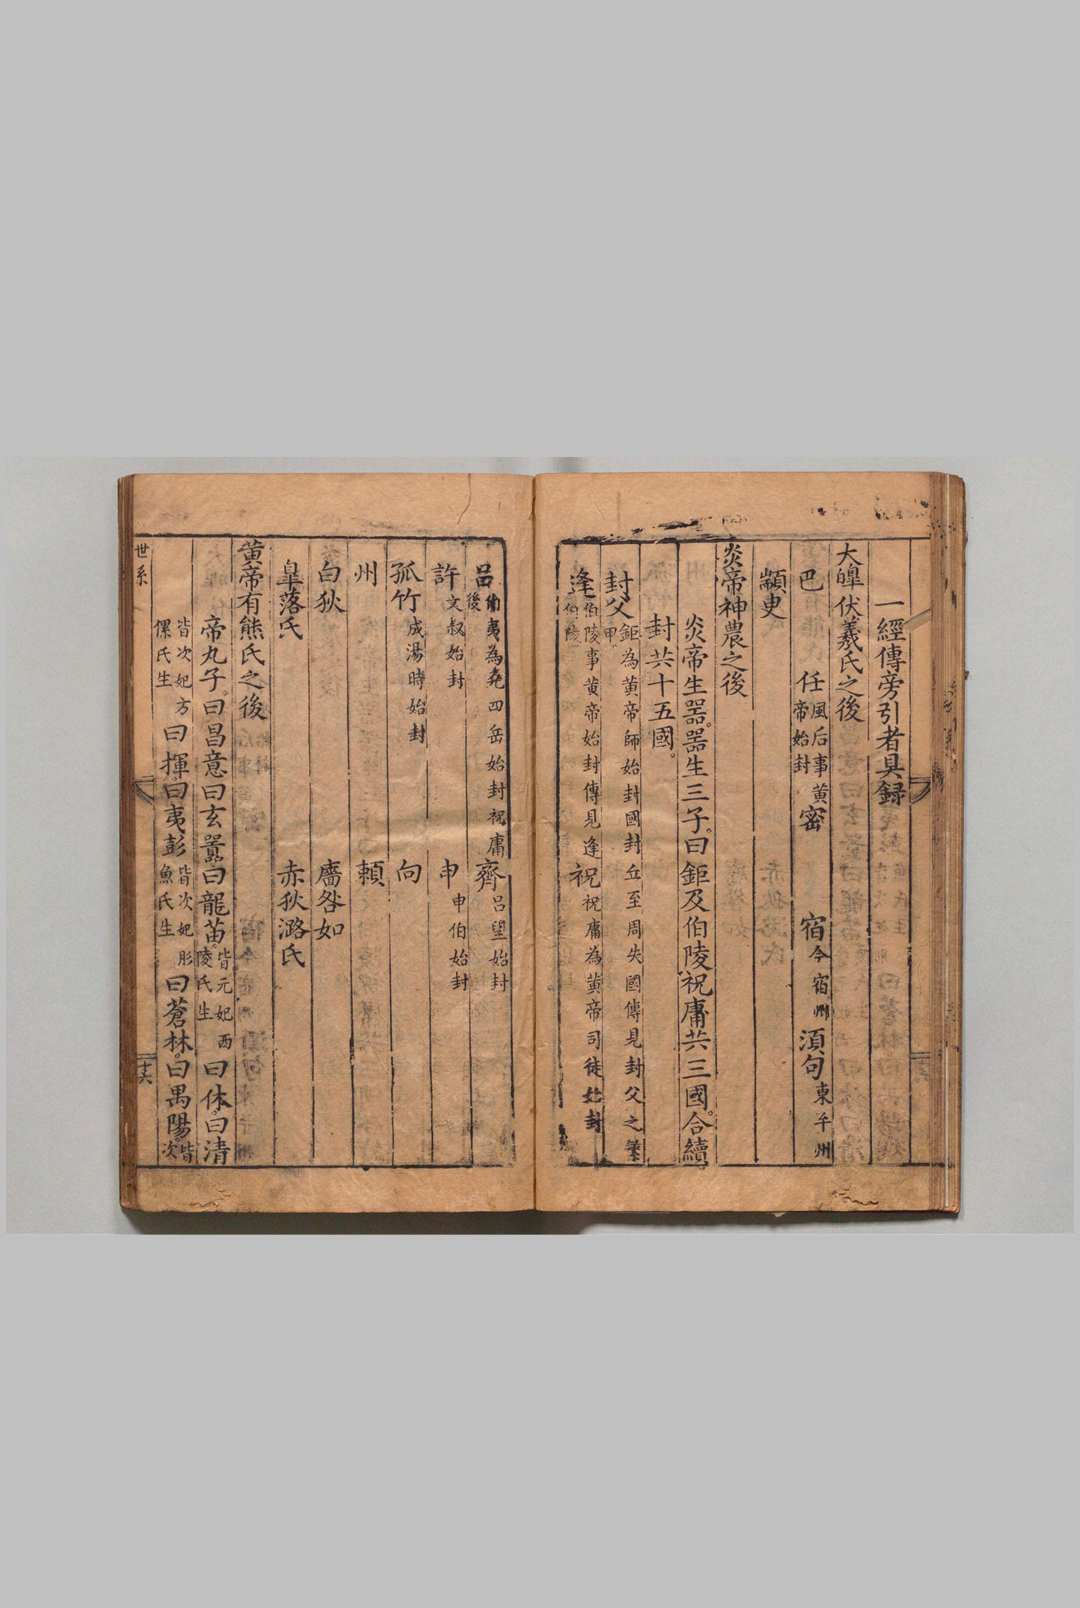 一經傳旁引者具録
大皥伏羲氏之後
巴 任風后事黄帝始封 密 宿今宿州 湏句東平州
顓臾
炎帝神農之後
炎帝生噐噐生三子曰鉅及伯陵祝庸共三國合續
封共十五國
封父鉅為黄帝師始封國封丘至周失國傳見封父之甲
逄伯陵事黄帝始封傳見逄伯陵 祝祝庸為黄帝司徒始封
吕伯夷為堯四岳始封祝庸後 齊吕望始封
許文叔始封 申申伯始封
孤竹成湯時始封 向
州 頼
白狄 廧咎如
臯落氏 赤狄潞氏
黄帝有熊氏之後
帝丸子曰昌意曰玄囂曰龍苗皆元妃西陵氏生曰休曰清
皆次妃方傫氏生曰揮曰夷彭皆次妃彤魚氏生曰蒼林曰禺陽皆次
世系
十六